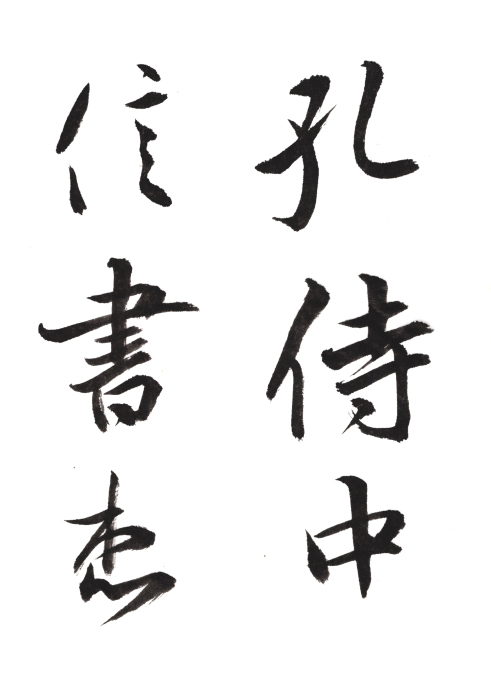 孔侍中
信書想